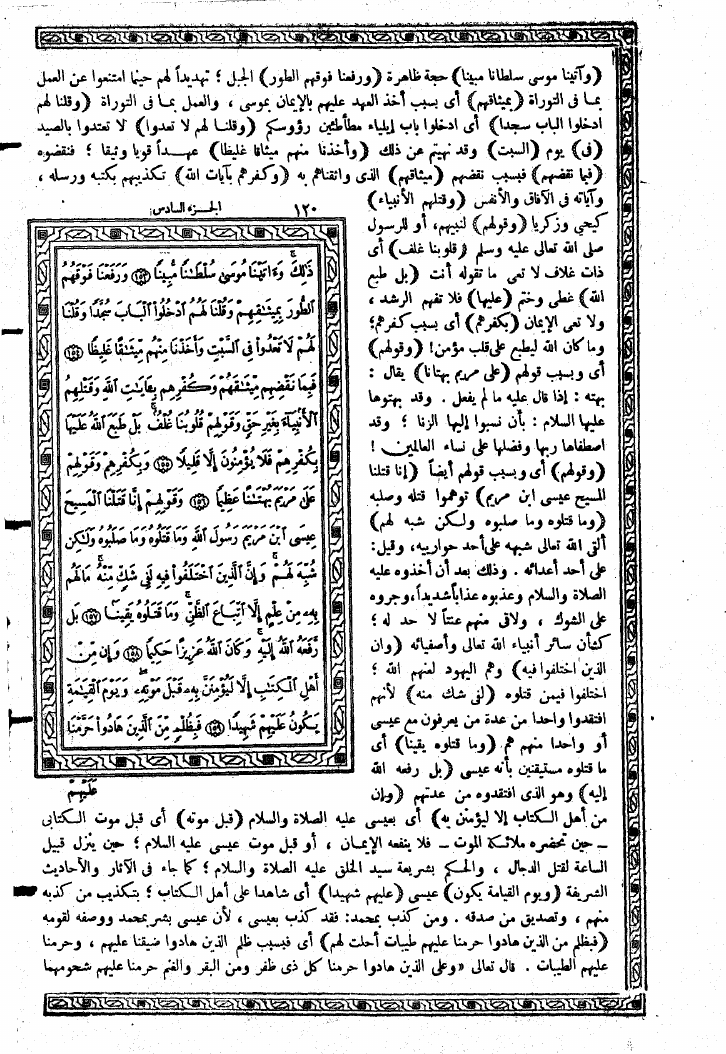 (وآتينا موسى سلطانا مبينا) حجة ظاهرة (ورفعنا فوقهم الطور) الجبل ؛ تهديداً لهم حينما امتنعوا عن العمل
بما فى التوراة (بميثاقهم) أى بسبب أخذ العهد عليهم بالإيمان بموسى ، والعمل بما فى التوراة (وقلنا لهم
ادخلوا الباب سجدا) أى ادخلوا باب إيلياء مطأطئين رؤوسكم (وقلنا لهم لا تعدوا) لا تعتدوا بالصيد
(فى) يوم (السبت) وقد نهيتم عن ذلك (وأخذنا منهم ميثاقا غليظا) عهداً قويا وثيقا ؛ فنقضوه
(فبما نقضهم) فبسبب نقضهم (ميثاقهم) الذى واثقناهم به (وكفرهم بآيات الله) تكذيبهم بكتبه ورسله ،
وآياته فى الآفاق والأنفس (وقتلهم الأنبياء)
كيحي وزكريا (وقولهم) لنبيهم، أو للرسول
صلى الله تعالى عليه وسلم (قلوبنا غلف) أى
ذات غلاف لا تعى ما تقوله أنت (بل طبع
الله) غطى وختم (عليها) فلا تفهم الرشد ،
ولا تعى الإيمان (بكفرهم) أى بسبب كفرهم؛
وما كان الله ليطبع على قلب مؤمن! (وقولهم)
أى وبسبب قولهم (على مريم بهتانا) يقال :
بهته : إذا قال عليه ما لم يفعل . وقد بهتوها
عليها السلام : بأن نسبوا إليها الزنا ؛ وقد
اصطفاها ربها وفضلها على نساء العالمين !
(وقولهم) أى وبسبب قولهم أيضاً (إنا قتلنا
المسيح عيسى ابن مريم) توهموا قتله وصلبه
(وما قتلوه وما صلبوه ولكن شبه لهم)
ألقى الله تعالى شبهه على أحد حوارييه، وقيل:
على أحد أعدائه . وذلك بعد أن أخذوه عليه
الصلاة والسلام وعذبوه عذاباً شديداً، وجروه
على الشوك ، ولاقى منهم عنتاً لا حد له ؛
كشأن سائر أنبياء الله تعالى وأصفيائه (وإن
الذين اختلفوا فيه) وهم اليهود لعنهم الله ؛
اختلفوا فيمن قتلوه (لفى شك منه) لأنهم
افتقدوا واحدا من عدة من يعرفون مع عيسى
أو واحدا منهم هم (وما قتلوه يقينا) أى
ما قتلوه مستيقنين بأنه عيسى (بل رفعه الله
إليه) وهو الذى افتقدوه من عدتهم (وإن
من أهل الكتاب إلا ليؤمنن به) أى بعيسى عليه الصلاة والسلام (قبل موته) أى قبل موت الكتابى
ـ حين تحضره ملائكة الموت ـ فلا ينفعه الإيمان ، أو قبل موت عيسى عليه السلام ؛ حين ينزل قبيل
الساعة لقتل الدجال ، والحكم بشريعة سيد الخلق عليه الصلاة والسلام ؛ كما جاء فى الآثار والأحاديث
الشريفة (ويوم القيامة يكون) عيسى (عليهم شهيدا) أى شاهدا على أهل الكتاب ؛ بتكذيب من كذبه
منهم ، وتصديق من صدقه . ومن كذب بمحمد: فقد كذب بعيسى ، لأن عيسى بشر بمحمد ووصفه لقومه
(فبظلم من الذين هادوا حرمنا عليهم طيبات أحلت لهم) أى فبسبب ظلم الذين هادوا ضيقنا عليهم ، وحرمنا
عليهم الطيبات . قال تعالى «وعلى الذين هادوا حرمنا كل ذى ظفر ومن البقر والغنم حرمنا عليهم شحومهما
١٢٠ الجزء السادس:
ذَٰلِكَ وَءَاتَيْنَا مُوسَىٰ سُلْطَٰنًا مُّبِينًا ﴿١٥٣﴾ وَرَفَعْنَا فَوْقَهُمُ
ٱلطُّورَ بِمِيثَٰقِهِمْ وَقُلْنَا لَهُمُ ٱدْخُلُوا۟ ٱلْبَابَ سُجَّدًا وَقُلْنَا
لَهُمْ لَا تَعْدُوا۟ فِى ٱلسَّبْتِ وَأَخَذْنَا مِنْهُم مِّيثَٰقًا غَلِيظًا ﴿١٥٤﴾
فَبِمَا نَقْضِهِم مِّيثَٰقَهُمْ وَكُفْرِهِم بِـَٔايَٰتِ ٱللَّهِ وَقَتْلِهِمُ
ٱلْأَنۢبِيَآءَ بِغَيْرِ حَقٍّ وَقَوْلِهِمْ قُلُوبُنَا غُلْفٌۢ بَلْ طَبَعَ ٱللَّهُ عَلَيْهَا
بِكُفْرِهِمْ فَلَا يُؤْمِنُونَ إِلَّا قَلِيلًا ﴿١٥٥﴾ وَبِكُفْرِهِمْ وَقَوْلِهِمْ
عَلَىٰ مَرْيَمَ بُهْتَٰنًا عَظِيمًا ﴿١٥٦﴾ وَقَوْلِهِمْ إِنَّا قَتَلْنَا ٱلْمَسِيحَ
عِيسَى ٱبْنَ مَرْيَمَ رَسُولَ ٱللَّهِ وَمَا قَتَلُوهُ وَمَا صَلَبُوهُ وَلَٰكِن
شُبِّهَ لَهُمْ وَإِنَّ ٱلَّذِينَ ٱخْتَلَفُوا۟ فِيهِ لَفِى شَكٍّ مِّنْهُ مَا لَهُم
بِهِۦ مِنْ عِلْمٍ إِلَّا ٱتِّبَاعَ ٱلظَّنِّ وَمَا قَتَلُوهُ يَقِينًۢا ﴿١٥٧﴾ بَل
رَّفَعَهُ ٱللَّهُ إِلَيْهِ وَكَانَ ٱللَّهُ عَزِيزًا حَكِيمًا ﴿١٥٨﴾ وَإِن مِّنْ
أَهْلِ ٱلْكِتَٰبِ إِلَّا لَيُؤْمِنَنَّ بِهِۦ قَبْلَ مَوْتِهِۦ وَيَوْمَ ٱلْقِيَٰمَةِ
يَكُونُ عَلَيْهِمْ شَهِيدًا ﴿١٥٩﴾ فَبِظُلْمٍ مِّنَ ٱلَّذِينَ هَادُوا۟ حَرَّمْنَا
عَلَيْهِمْ